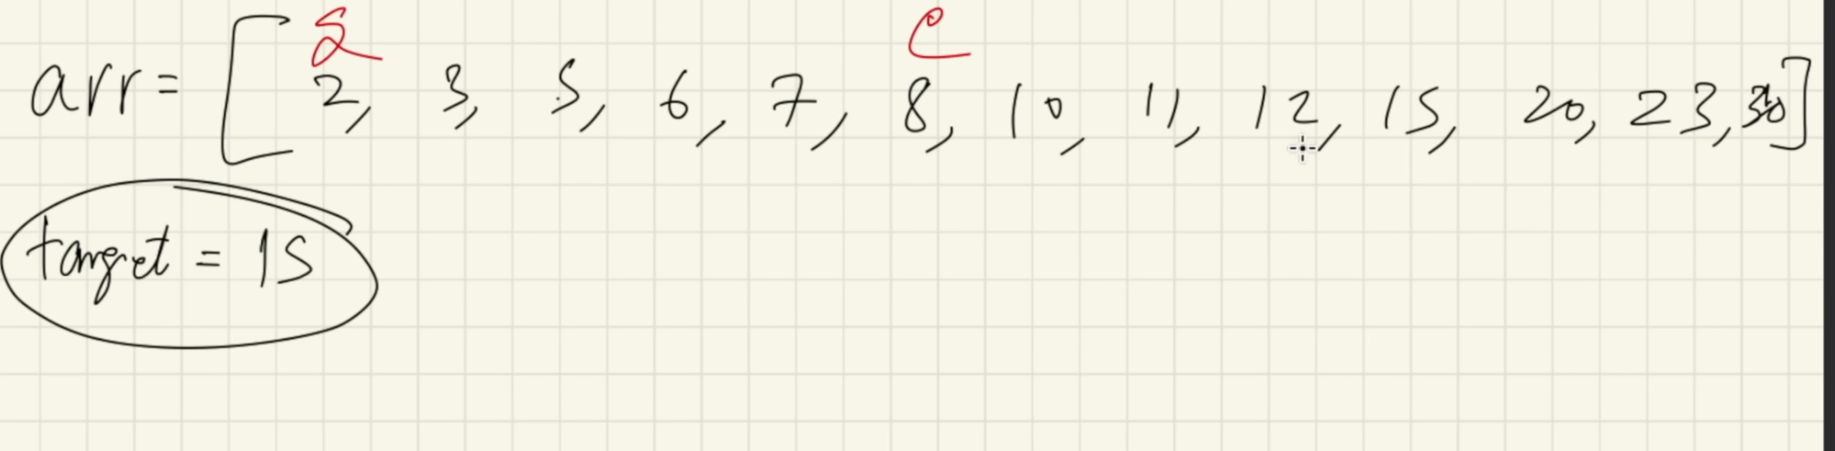 s e
arr = [ 2, 3, 5, 6, 7, 8, 10, 11, 12, 15, 20, 23, 30]
target = 15